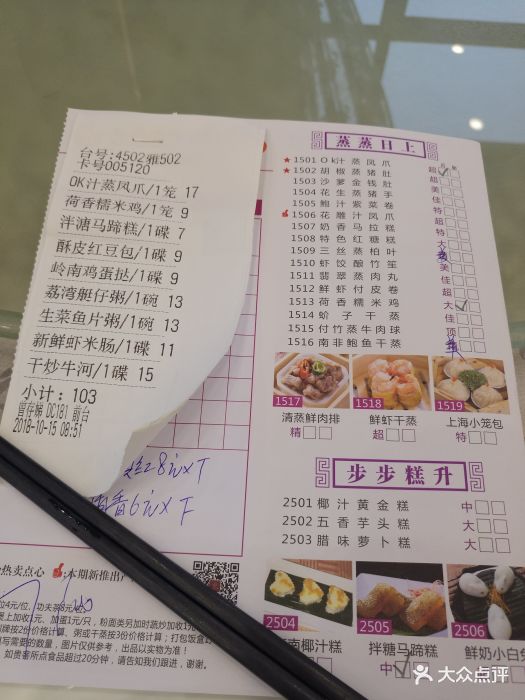 台号:4502雅502
卡号005120
OK汁蒸凤爪/1笼 17
荷香糯米鸡/1笼 9
泮塘马蹄糕/1碟 7
酥皮红豆包/1碟 9
岭南鸡蛋挞/1碟 9
荔湾艇仔粥/1碗 13
生菜鱼片粥/1碗 13
新鲜虾米肠/1碟 11
干炒牛河/1碟 15
小计:103
2018-10-15 08:51
蒸蒸日上
★ 1501 Ok汁蒸凤爪 超
★ 1502 胡椒蒸猪肚 超
1503 沙爹金钱肚 美
1504 花生蒸猪手 佳
1505 鲍汁紫菜卷 特
1506 花雕汁凤爪 超
1507 奶香马拉糕 特
1508 特色红糖糕 大
1509 三丝蒸柏叶
1510 虾饺酿竹笙 美
1511 翡翠蒸肉丸 佳
1512 鲜虾付皮卷 超
1513 荷香糯米鸡 大
1514 蚧子干蒸 佳
1515 付竹蒸牛肉球 顶
1516 南非鲍鱼干蒸
1517
清蒸鲜肉排
精
1518
鲜虾干蒸
超
1519
上海小笼包
特
步步糕升
2501 椰汁黄金糕 中
2502 五香芋头糕 大
2503 腊味萝卜糕 大
2504
南椰汁糕
大
2505
拌糖马蹄糕
中
2506
鲜奶小白兔
热卖点心
:本期新推出
大众点评